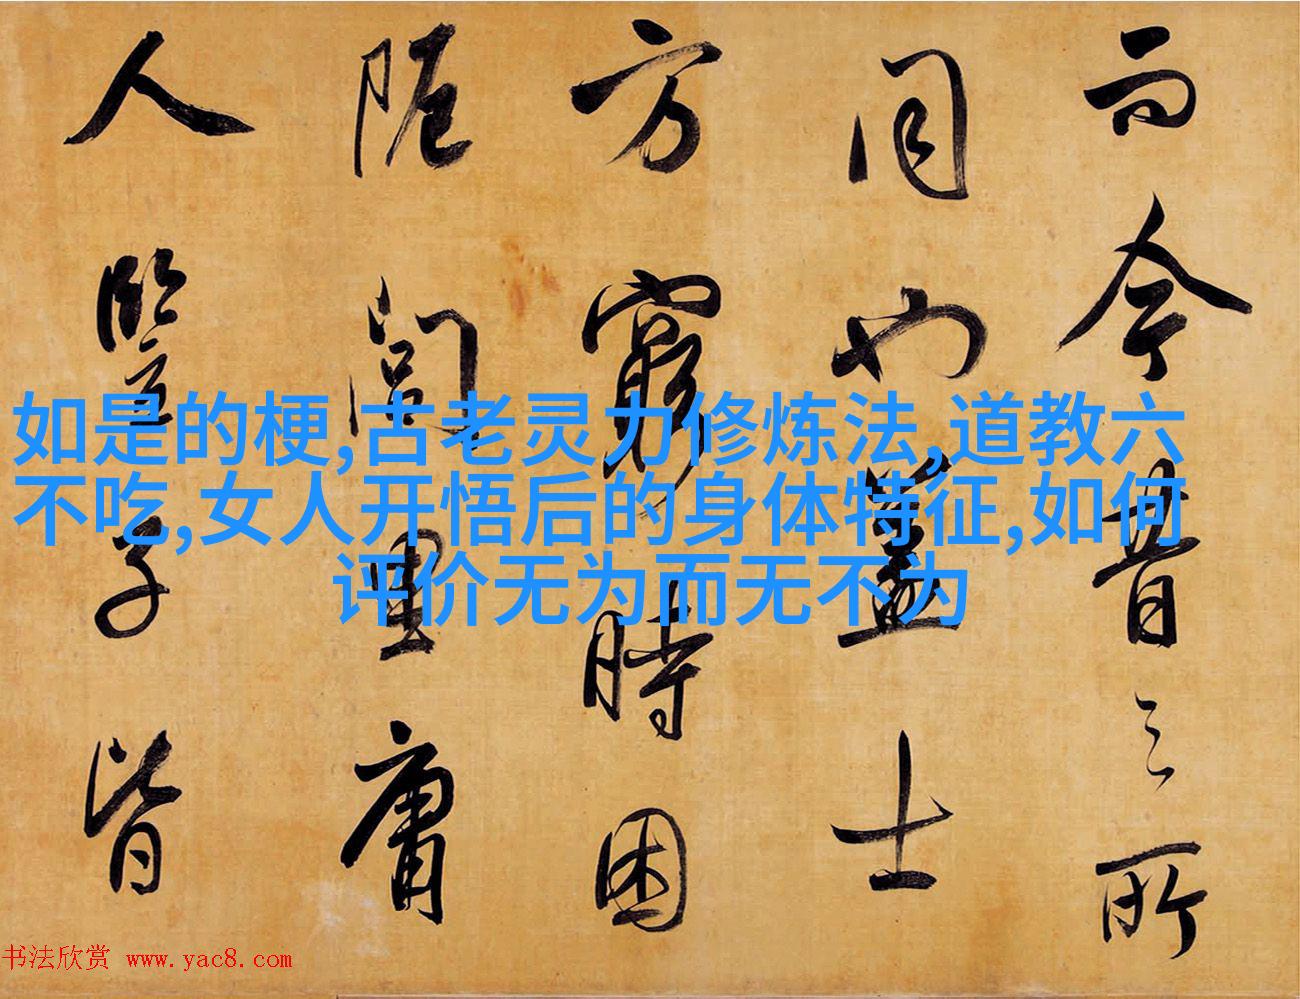 而今昔之所
同也蓋士
方窮時困
阨閭里庸
人豎子皆
如是的梗,古老灵力修炼法,道教六
不吃,女人开悟后的身体特征,如何
评价无为而无不为
书法欣赏 www.yac8.com